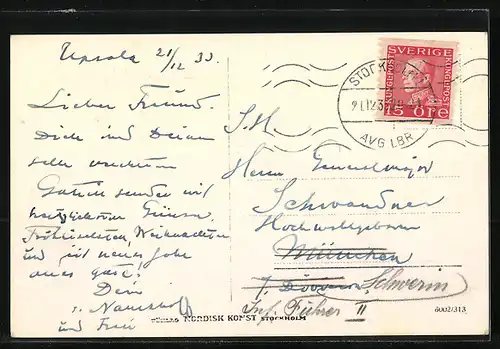 Upsala 21/12 33.
Lieber Freund.
Dich und Deine
sehr verehrten
Gattin senden mit
herzlichsten Grüssen
Fröhlichsten Weihnachten
und mit neues Jahr
alles gute!
Dein
und Frau
SVERIGE
KUNGL.POST
KUNGL.POST
15 ÖRE
STOCKHOLM
21.12.3
AVG LBR
S.H.
Herrn Generalmajor
Schwandner
Hochwohlgeboren
München
Schwerin
Inf. Führer II
NORDISK KONST STOCKHOLM
6002/313